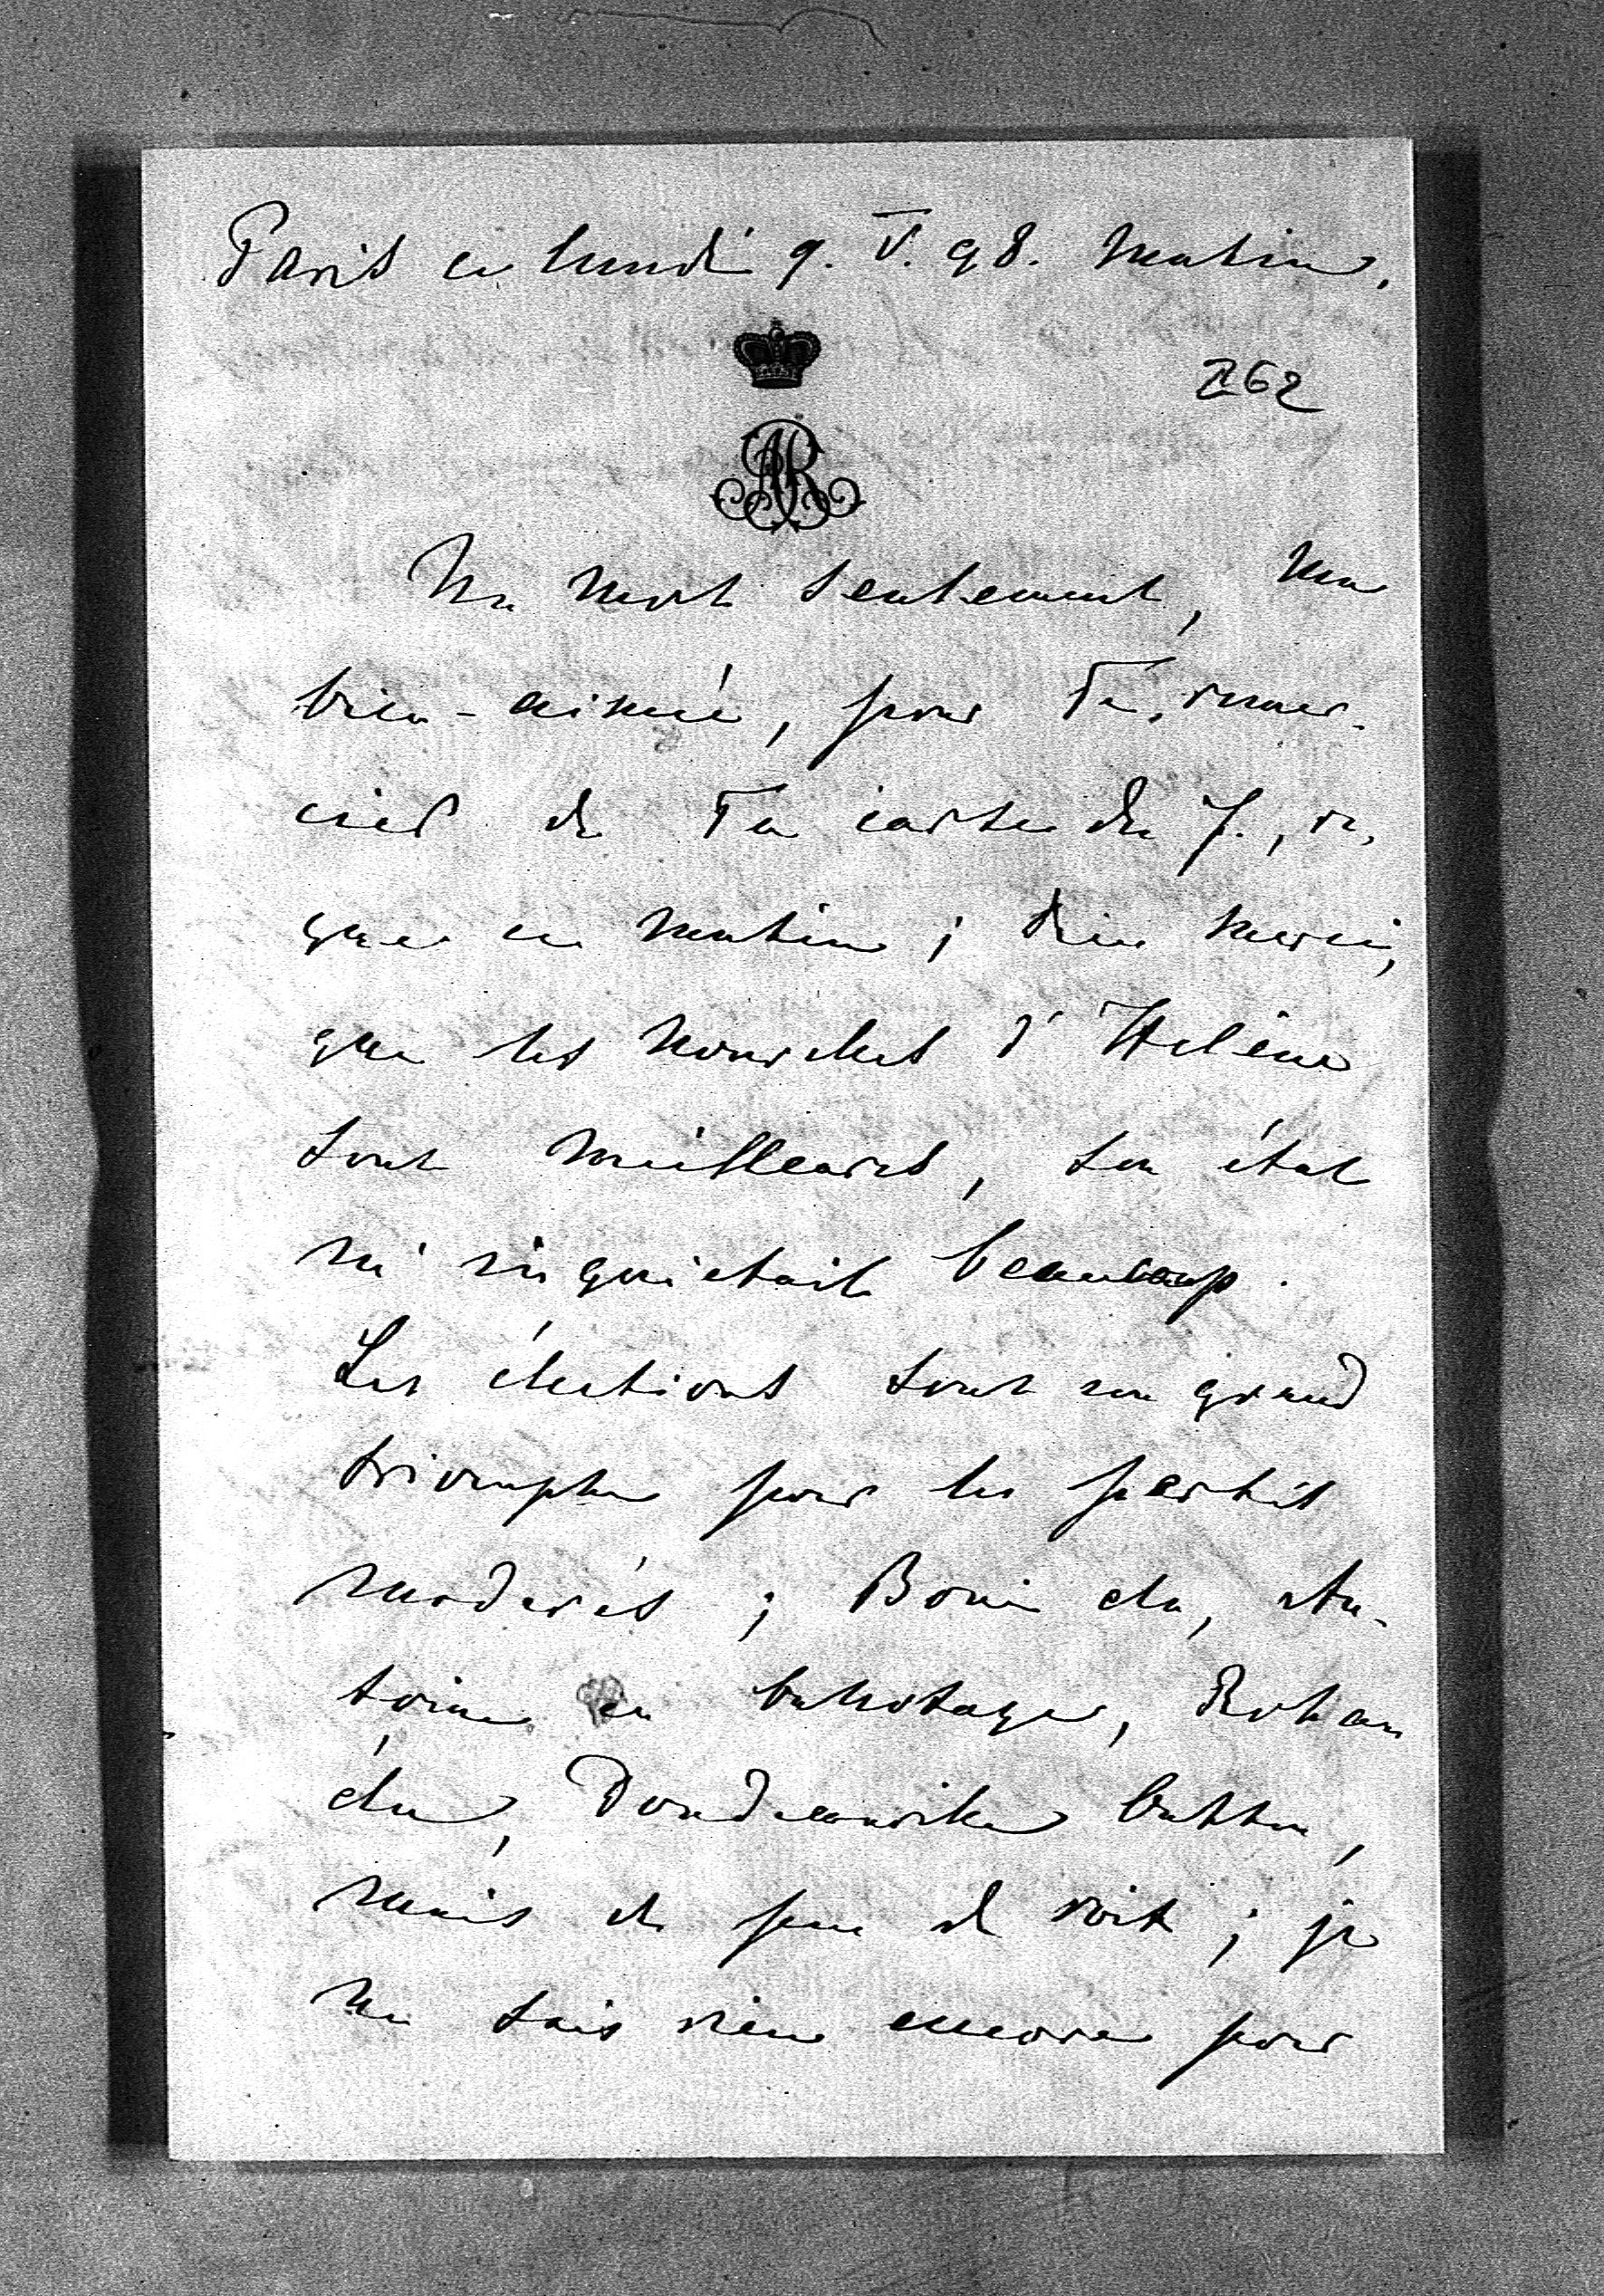 Paris ce lundi 9. V. 98. Matin.
262
AR
Un mot seulement, mon
bien-aimé, pour Te remer-
cier de Ta carte du 7., re-
çue ce matin ; Dieu merci,
que les nouvelles d'Hélène
sont meilleures, son état
m'inquiétait beaucoup.
Les élections sont un grand
triomphe pour les partis
modérés ; Boni élu, An-
toine en ballotage, Rohan
élu, Doudeauville battu,
mais de peu de voix ; je
ne sais rien encore pour